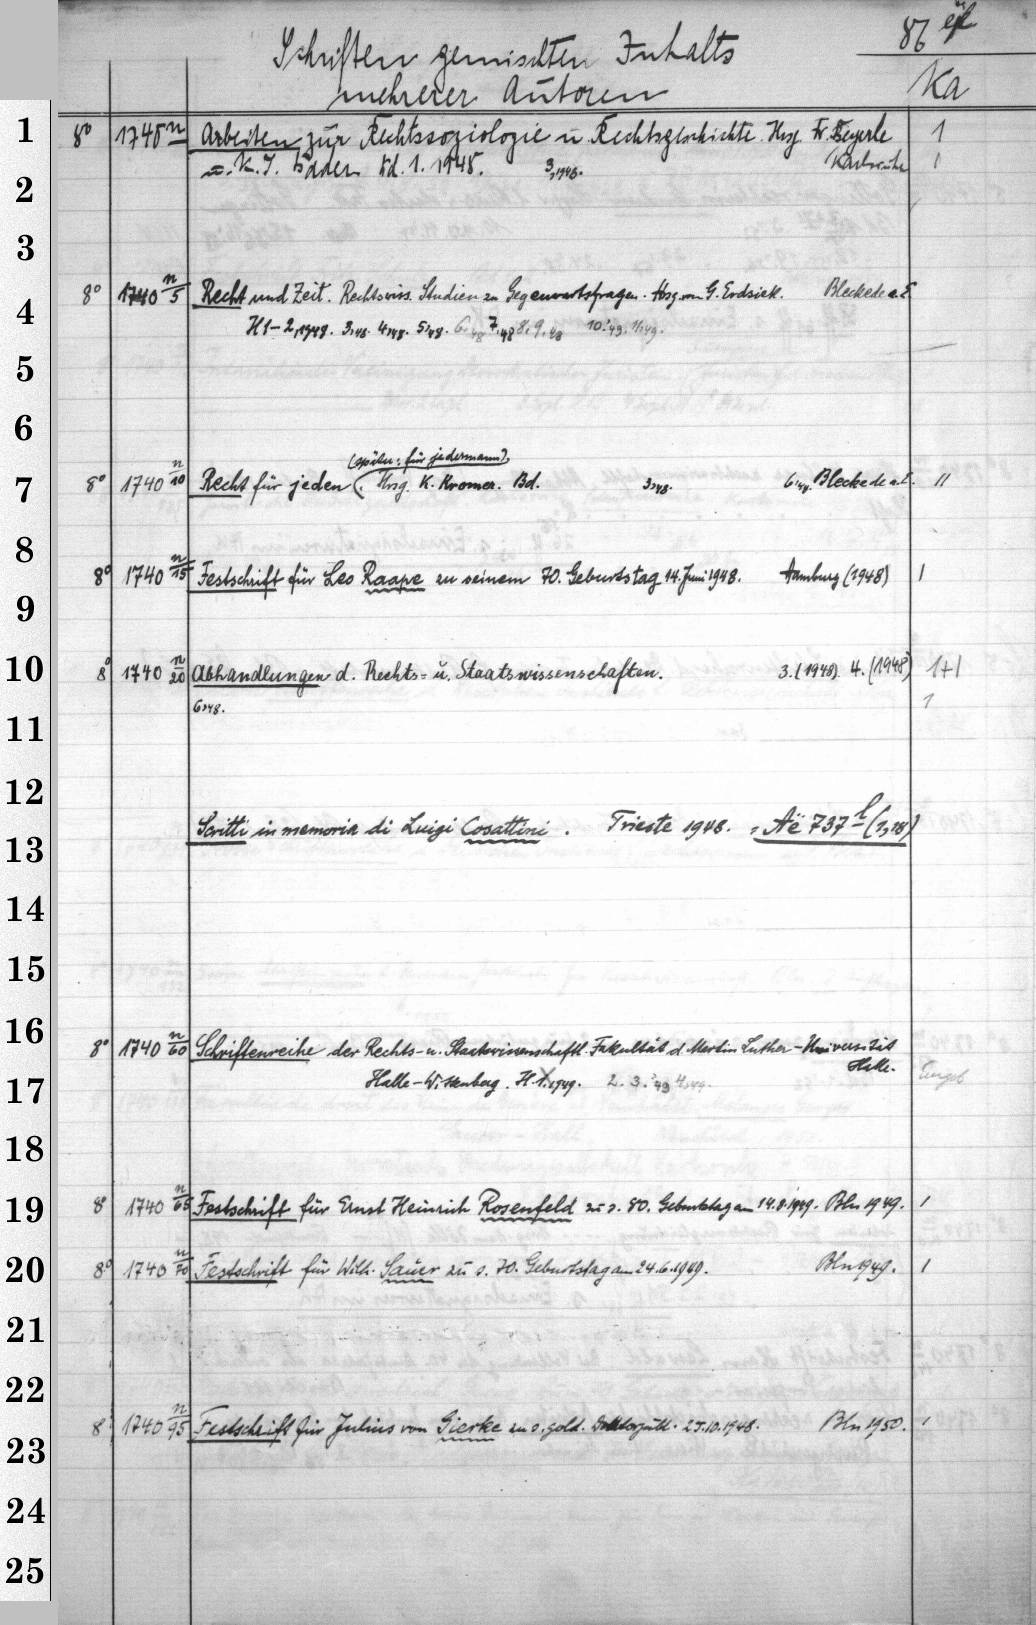 Schriften gemischten Inhalts
86
mehrerer Autoren
Ka
1 8° 1745 n Arbeiten zur Rechtssoziologie u. Rechtsgeschichte. Hrsg. Fr. Beyerle 1
u. K. S. Bader Bd. 1. 1948. 3,1948. Karlsruhe 1
2
3
4 8° 1740 n/5 Recht und Zeit. Rechtswiss. Studien zu Gegenwartsfragen. Hrsg. von G. Erdsiek. Bleckede a. E.
H 1-2,1948. 3,48. 4,48. 5,48. 6,48 7,48 8,9,48 10,'49, 11,49.
5
6
(später: für jedermann).
7 8° 1740 n/10 Recht für jeden. Hrsg. K. Kromer. Bd. 3,48. 6,48. Bleckede a. E. 11
8
8° 1740 n/15 Festschrift für Leo Raape zu seinem 70. Geburtstag 14. Juni 1948. Hamburg (1948) 1
9
10 8° 1740 n/20 Abhandlungen d. Rechts- u. Staatswissenschaften. 3. (1948). 4. (1948) 1+1
6,48. 1
11
12
Scritti in memoria di Luigi Cosattini. Trieste 1948. Aë 737 l (1,18)
13
14
15
16
8° 1740 n/60 Schriftenreihe der Rechts- u. Staatswissenschaftl. Fakultät d. Martin Luther-Universität
Halle-Wittenberg. H. 1. 1949. 2. 3. '49 4,49. Halle.
17
18
19 8° 1740 n/65 Festschrift für Ernst Heinrich Rosenfeld zu s. 80. Geburtstag am 14.8.1949. Bln 1949. 1
20 8° 1740 n/70 Festschrift für Wilh. Sauer zu s. 70. Geburtstag am 24.6.1949. Bln 1949. 1
21
22
8° 1740 n/95 Festschrift für Julius von Gierke zu s. gold. Doktorjubil. 25.10.1948. Bln 1950. 1
23
24
25